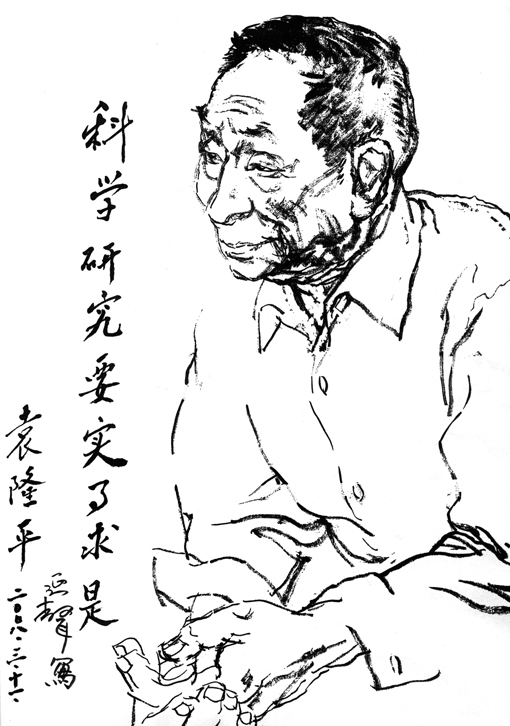 科学研究要实事求是
袁隆平
寫
二〇〇八·三·十一